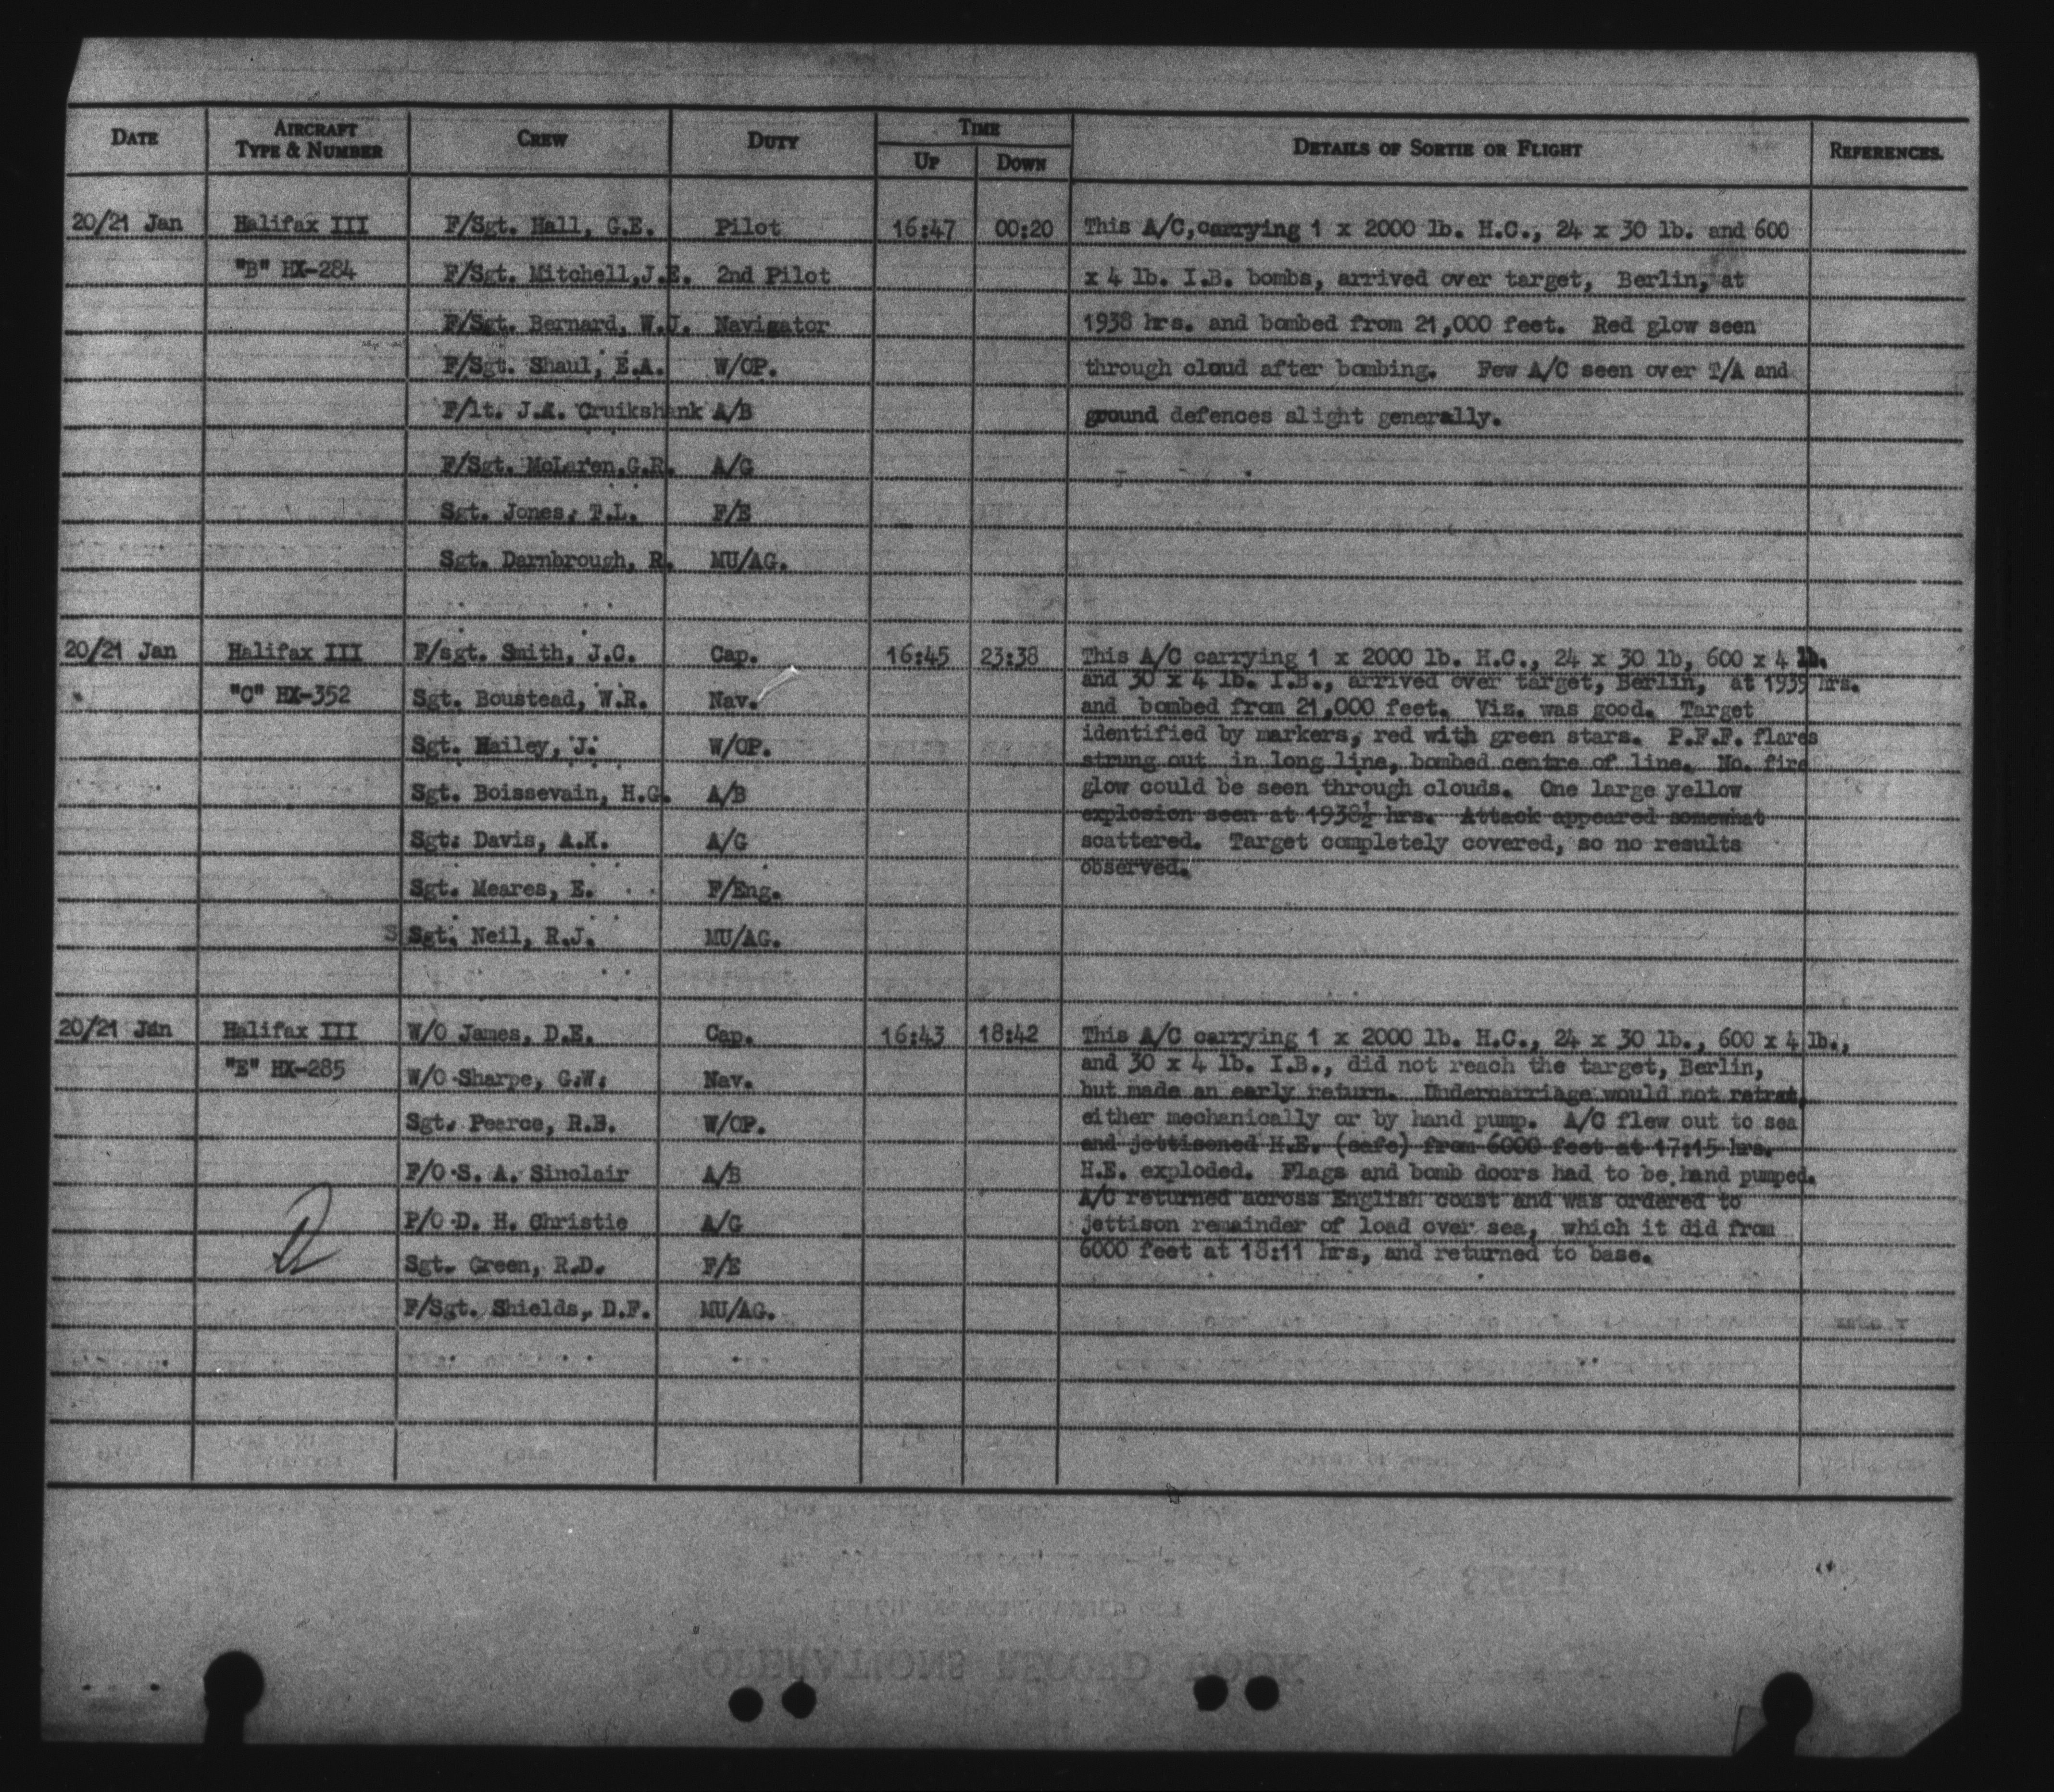 DATE AIRCRAFT TYPE & NUMBER CREW DUTY TIME UP DOWN DETAILS OF SORTIE OR FLIGHT REFERENCES.
20/21 Jan Halifax III F/Sgt. Hall, G.E. Pilot 16:47 00:20 This A/C,carrying 1 x 2000 lb. H.C., 24 x 30 lb. and 600
"B" HX-284 F/Sgt. Mitchell,J.E. 2nd Pilot x 4 lb. I.B. bombs, arrived over target, Berlin, at
F/Sgt. Bernard, W.J. Navigator 1938 hrs. and bombed from 21,000 feet. Red glow seen
F/Sgt. Shaul, E.A. W/OP. through cloud after bombing. Few A/C seen over T/A and
F/lt. J.A. Cruikshank A/B ground defences slight generally.
F/Sgt. McLaren,G.R. A/G
Sgt. Jones, T.L. F/E
Sgt. Darnbrough, R. MU/AG.
20/21 Jan Halifax III F/sgt. Smith, J.C. Cap. 16:45 23:38 This A/C carrying 1 x 2000 lb. H.C., 24 x 30 lb, 600 x 4 lb.
and 30 x 4 lb. I.B., arrived over target, Berlin, at 1939 hrs.
"C" HX-352 Sgt. Boustead, W.R. Nav. and bombed from 21,000 feet. Viz. was good. Target
identified by markers, red with green stars. P.F.F. flares
Sgt. Hailey, J. W/OP. strung out in long line, bombed centre of line. No. fire
Sgt. Boissevain, H.G. A/B glow could be seen through clouds. One large yellow
explosion seen at 1938½ hrs. Attack appeared somewhat
Sgt. Davis, A.K. A/G scattered. Target completely covered, so no results
observed.
Sgt. Meares, E. F/Eng.
S Sgt. Neil, R.J. MU/AG.
20/21 Jan Halifax III W/O James, D.E. Cap. 16:43 18:42 This A/C carrying 1 x 2000 lb. H.C., 24 x 30 lb., 600 x 4 lb.,
"E" HX-285 W/O Sharpe, G.W. Nav. and 30 x 4 lb. I.B., did not reach the target, Berlin,
but made an early return. Undercarriage would not retrat,
Sgt. Pearce, R.B. W/OP. either mechanically or by hand pump. A/C flew out to sea
and jettisoned H.E. (safe) from 6000 feet at 17:15 hrs.
F/O S. A. Sinclair A/B H.E. exploded. Flags and bomb doors had to be hand pumped.
A/C returned across English coast and was ordered to
P/O D. H. Christie A/G jettison remainder of load over sea, which it did from
6000 feet at 18:11 hrs, and returned to base.
Sgt. Green, R.D. F/E
F/Sgt. Shields, D.F. MU/AG.
OPERATIONS RECORD BOOK